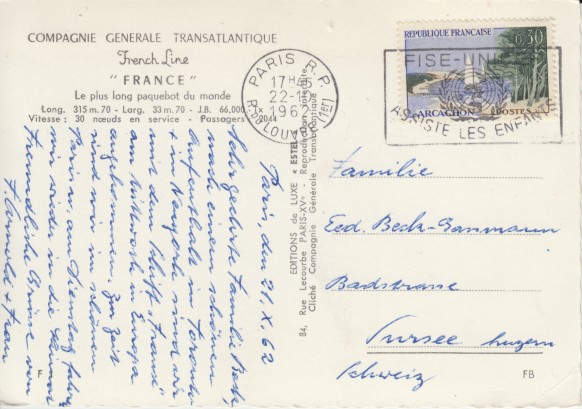 COMPAGNIE GENERALE TRANSATLANTIQUE
French Line
" FRANCE "
Le plus long paquebot du monde
Long. 315 m. 70 - Larg. 33 m. 70 - J.B. 66,000 tx
Vitesse : 30 nœuds en service - Passagers 2044
PARIS R.P.
17H45
22-10
1962
R. DE LOUVRE (1er)
REPUBLIQUE FRANÇAISE
0,30
ARCACHON
POSTES
FISE-UNICEF
ASSISTE LES ENFANTS
Paris, den 21. X. 62
Sehr geehrte Familie Beck,
nach einem schönen
Aufenthalt in Toronto
+ in Newyork sind wir
mit dem Schiff „France"
am Mittwoch in Europa
angekommen. Zur Zeit
sind wir im schönen
Paris u. am Dienstag fahren
wir wieder in die Heimat
Freundliche Grüsse von
+ Frau
EDITIONS de LUXE « ESTEL »
84, Rue Lecourbe PARIS-XVe - Reproduction interdite
Cliché Compagnie Générale Transatlantique
Familie
Ed. Beck-
Badstrasse
Sursee Luzern
Schweiz
F
FB